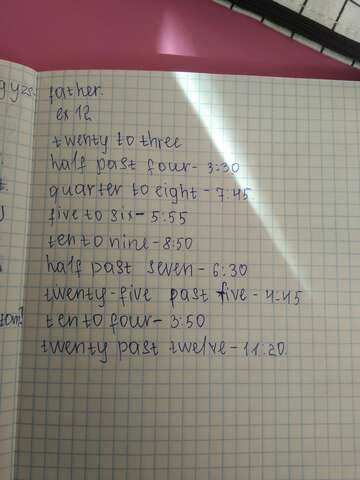 father.
ex 12
twenty to three
half past four - 3:30
quarter to eight - 7:45
five to six - 5:55
ten to nine - 8:50
half past seven - 6:30
twenty-five past five - 4:45
ten to four - 3:50
twenty past twelve - 11:20